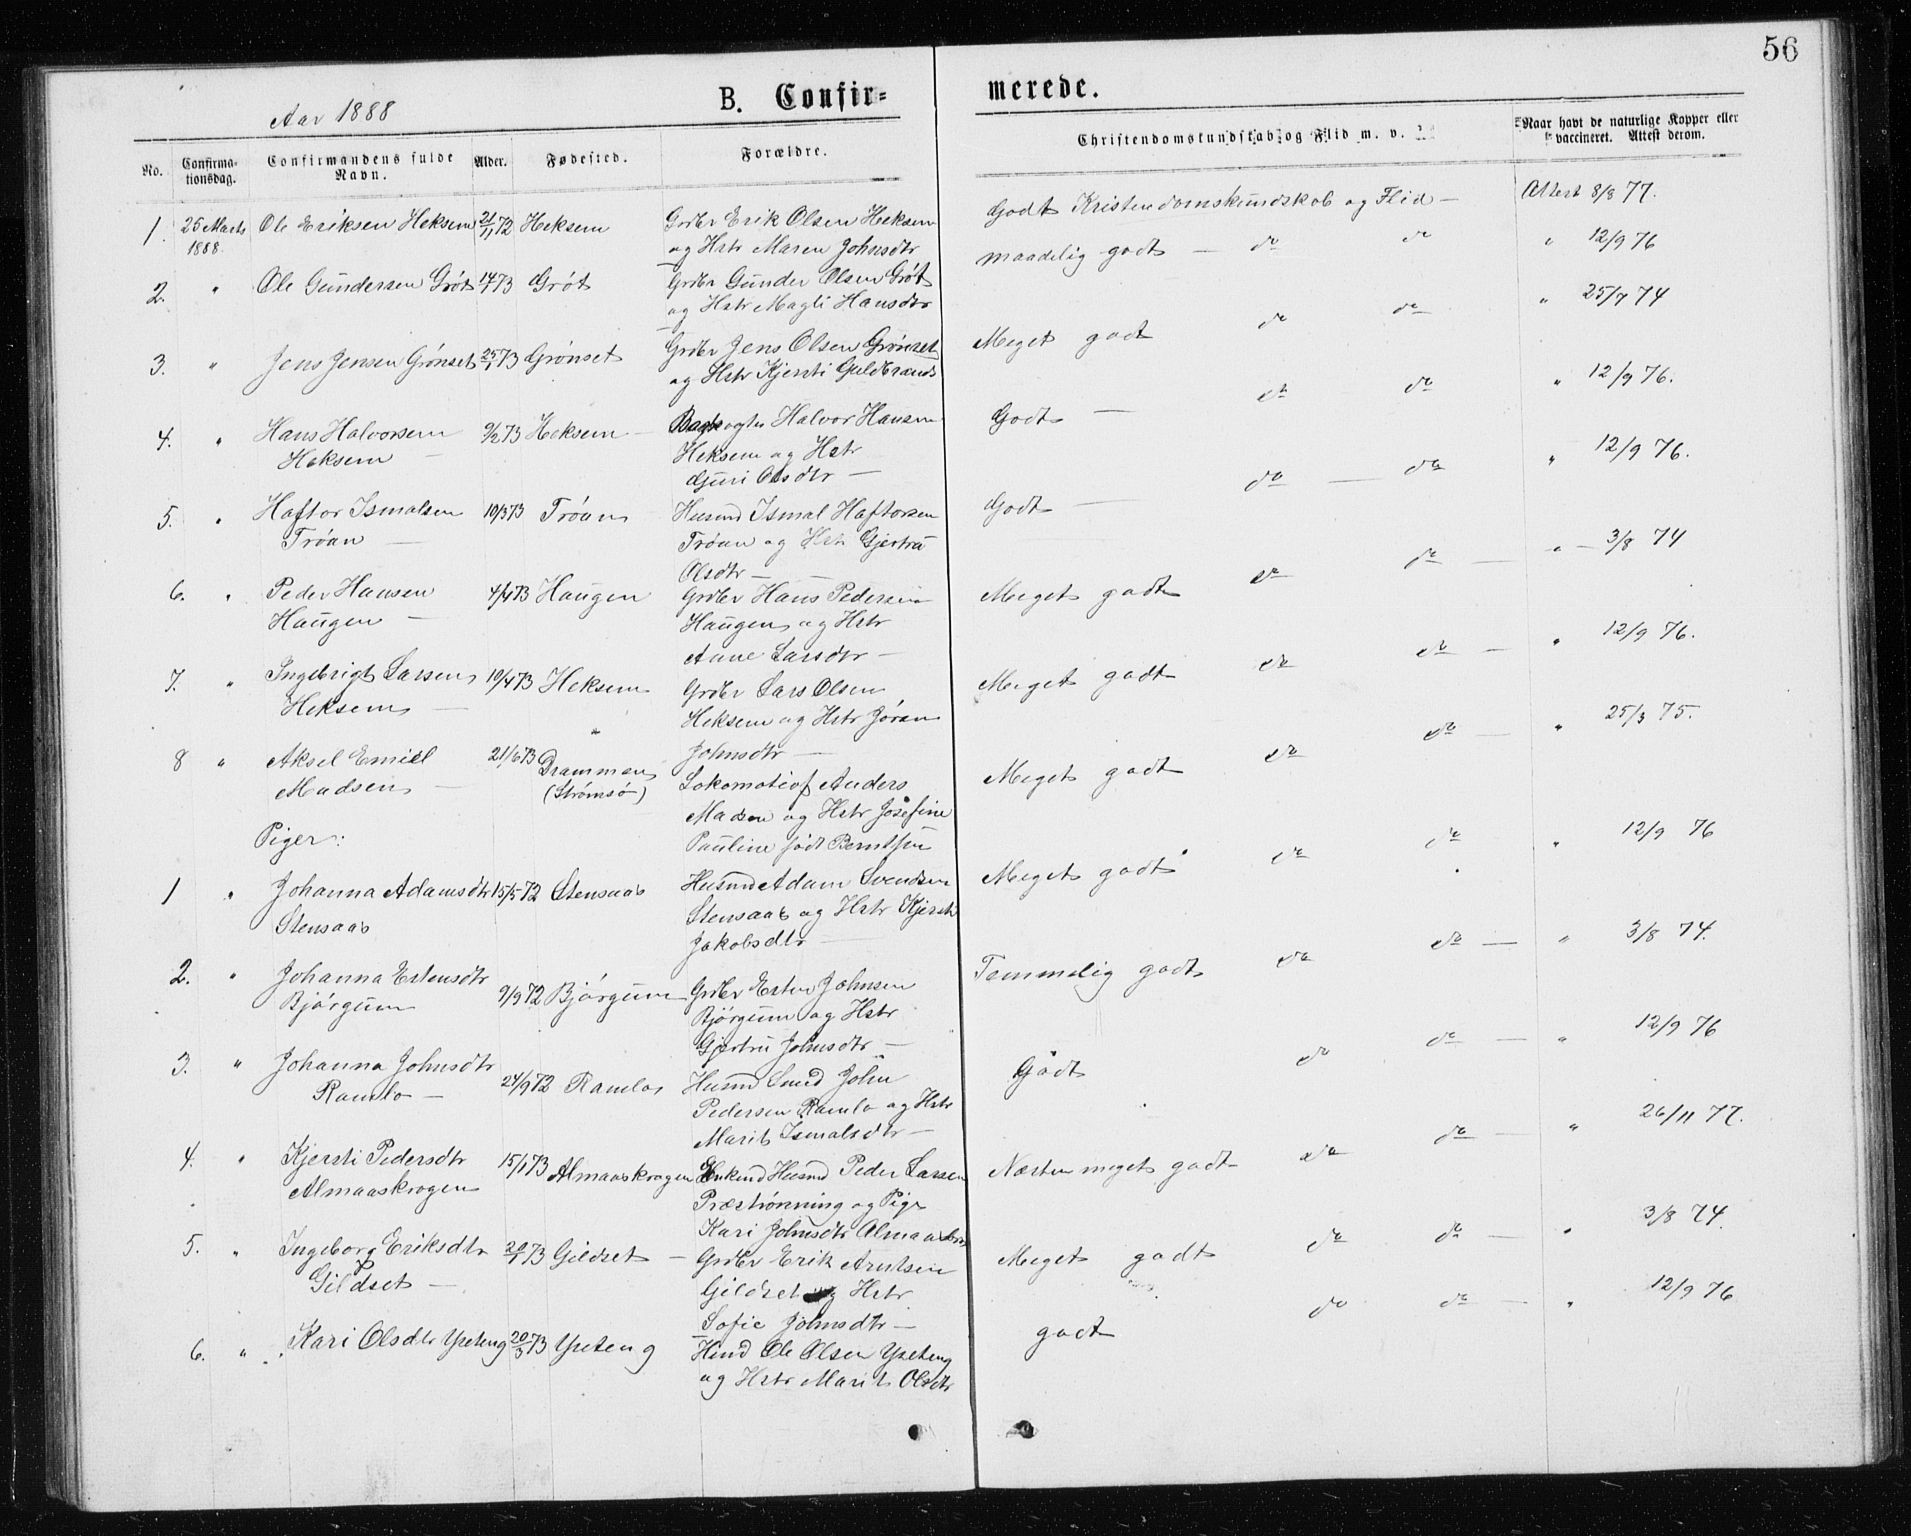 56
Aar 1888
B. Confir=
merede.
No.
Confirma-
tionsdag.
Confirmandens fulde
Navn.
Alder.
Fødested.
Forældre.
Christendomskundskab og Flid m. v.
Naar havt de naturlige Kopper eller
vaccineret. Attest derom.
1. 25 Marts Ole Eriksen Heksem 21/11 72 Heksem Grdbr Erik Olsen Heksem Godt Kristendomskundskab og Flid — Attest 8/8 77.
1888. og Hstr Maren Johnsdtr
2. " Ole Gundersen Grøt 73 Grøt Grdbr Gunder Olsen Grøt maadelig godt — do do " 12/9 76
og Hstr Magli Hansdtr
3. " Jens Jensen Grønset 25/1 73 Grønset Grdbr Jens Olsen Grønset Meget godt do do " 25/7 74
og Hstr Kjersti Guldbrands
4. " Hans Halvorsen 9/2 73 Heksem — Halvor Hansen Godt — do do " 12/9 76.
Heksem — Heksem og Hstr
Guri Olsdtr —
5. " Haftor Ismalsen 10/3 73 Trøan Husmd Ismal Haftorsen Godt — do — do " 12/9 76.
Trøan — Trøan og Hstr Gjertru
Olsdtr —
6. " Peder Hansen 4/4 73 Haugen Grdbr Hans Pedersen Meget godt do do — " — 3/8 74
Haugen — Haugen og Hstr
Anne Larsdtr —
7. " Ingebrigt Larsen 10/4 73 Heksem Grdbr Lars Olsen Meget godt do do — " 12/9 76.
Heksem — Heksem og Hstr Jøran
Johnsdtr —
8 " Aksel Emill 21/6 73 Drammen Lokomotivf Anders Meget godt do do — " 25/3 75.
Madsen — (Strømsø) Madsen og Hstr Josefine
Pauline født Berntsen
Piger:
1 " Johanna Adamsdtr 15/5 72 Stensaas Husmd Adam Svendsen Meget godt do do " 12/9 76
Stensaas Stensaas og Hstr Kjersti
Jakobsdtr —
2. " Johanna Estensdtr 9/9 72 Bjørgum Grdbr Esten Johnsen Temmelig godt do do — " 3/8 74.
Bjørgum Bjørgum og Hstr
Gjertru Johnsdtr —
3. " Johanna Johnsdtr 24/9 72 Ramlo Husmd Smed John Godt do do — " 12/9 76
Ramlo — Pedersen Ramlo og Hstr
Marit Ismalsdtr —
4. " Kjersti Pedersdtr 15/1 73 Almaaskrogen Enkemd Husmd Peder Larsen Næsten meget godt do do — " 26/11 77.
Almaaskrogen Præstrønning og Pige
Kari Johnsdtr
5. " Ingeborg Eriksdtr 20/1 73 Gildset — Grdbr Erik Arntsen Meget godt do do — " 3/8 74.
Gildset — Gildset og Hstr
Sofie Johnsdtr —
6. " Kari Olsdtr Ysteteng 20/3 73 Ysteteng Hmd Ole Olsen Ysteteng godt do do — " 12/9 76
og Hstr Marit Olsdtr